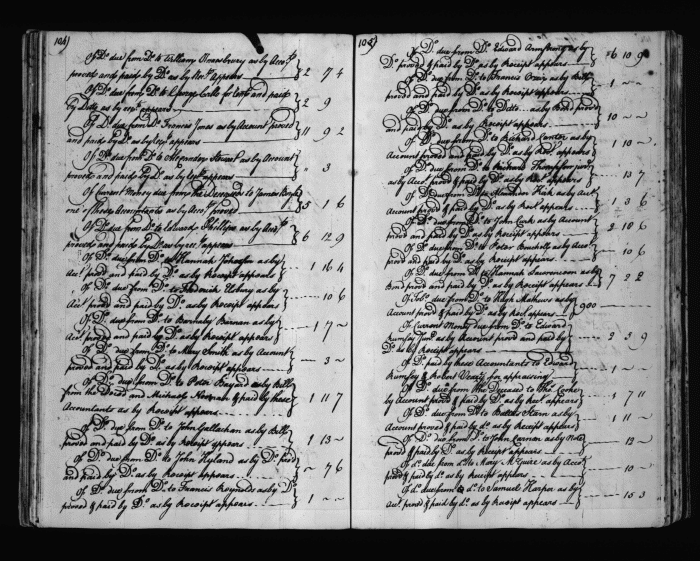 104)
Of Do. due from Do. to William Brownbury as by Accot.
proved and paid by Do. as by Rect. Appears 2 7 4
Of Do. due from Do. to George Calle for and paid
by Ditto as by rect. appears 2 9
Of Do. due from Do. Francis Jones as by Account proved
and paid by Do. as by rect. appears 11 9 2
Of Do. due from Do. to Alexander Stewart as by Account
proved and paid by Do. as by rect. appears " 3
Of Current Money due from the Deceased to James
one of these Accountants as by Accot. proved 5 1 6
Of Do. due from Do. to Edward Phillips as by Accot.
proved and paid by Do. as by rect. appears 6 12 9
Of Do. due from Do. to Hannah Johnston as by
Acct. prov'd and paid by Do. as by Receipt appears 1 16 4
Of Do. due from Do. to Frederick Elsbury as by
Acct. prov'd and paid by Do. as by Receipt appears 10 6
Of Do. due from Do. to Barnaby Barnan as by
Acct. proved and paid by Do. as by Receipt appears 1 7 ~
Of Do. due from Do. to Mary Smith as by Account
proved and paid by Do. as by Receipt appears ~ 3 ~
Of Do. due from Do. to Peter Bayard as by Bill
from the Deced. and Michael & paid by these
Accountants as by Receipt appears 1 11 7
Of Do. due from Do. to John Gallachan as by Bill
proved and paid by Do. as by Receipt appears 1 13 ~
Of Do. due from Do. to John Hyland as by Do. prov'd
and paid by Do. as by Receipt appears ~ 7 6
Of Do. due from Do. to Francis Reynolds as by Do.
proved & paid by Do. as by Receipt appears 1 ~ ~
105)
Of Do. due from Do. Edward Armstrong as by
Do. proved & paid by Do. as by Receipt appears 6 10 9
Of Do. due from Do. to Francis Craig as by Bill
proved and paid by Do. as by Receipt appears 1 ~
Of Do. due from Do. to Ditto as by Bond proved
and paid by Do. as by Receipt appears 10 ~ ~
Of Do. due from Do. to Richard Cantor as by
Account proved and paid by Do. as by Rect. appears 1 10 ~
Of Do. due from Do. to Richard Thompson
Account proved & paid by Do. as by Rect. appears 13 7
Of Do. due from Do. to as by Acct.
Account proved & paid by Do. as by Rect. appears 1 3 6
Of Do. due from Do. to John Cork as by Account
proved and paid by Do. as by Receipt appears 2 10 6
Of Do. due from Do. to Peter Bouchell as by Acco.
proved and paid by Do. as by Receipt appears 10 6
Of Do. due from Do. to Hannah Lawrenceson as by
Bond proved and paid by Do. as by Receipt appears 7 2 2
Of Tobo. due from Do. to Hugh Mathews as by
Account proved & paid by Do. as by Rect. appears 900
Of Current Money due from Do. to Edward
Rumsey Junr. as by Account proved and paid by
Do. as by Receipt appears 2 3 9
Of Do. paid by these Accountants to Edward
Rumsey & Robert Veazey for appraising 1 ~
Of Do. due from the Deceased to Thos.
by Account proved & paid by Do. as by Rect. appears 1 7 11
Of Do. due from Do. to Starn as by
Account proved & paid by Do. as by Receipt appears 1 11
Of Do. due from Do. to John Carnan as by Note
proved and paid by Do. as by Receipt appears 12 ~
Of do. due from do. to Mary McGuire as by Acco
proved and paid by Do. as by Receipt appears 10 ~
Of do. due from do. to Samuel Harper as by
Acct. proved & paid by do. as by Receipt appears 15 3